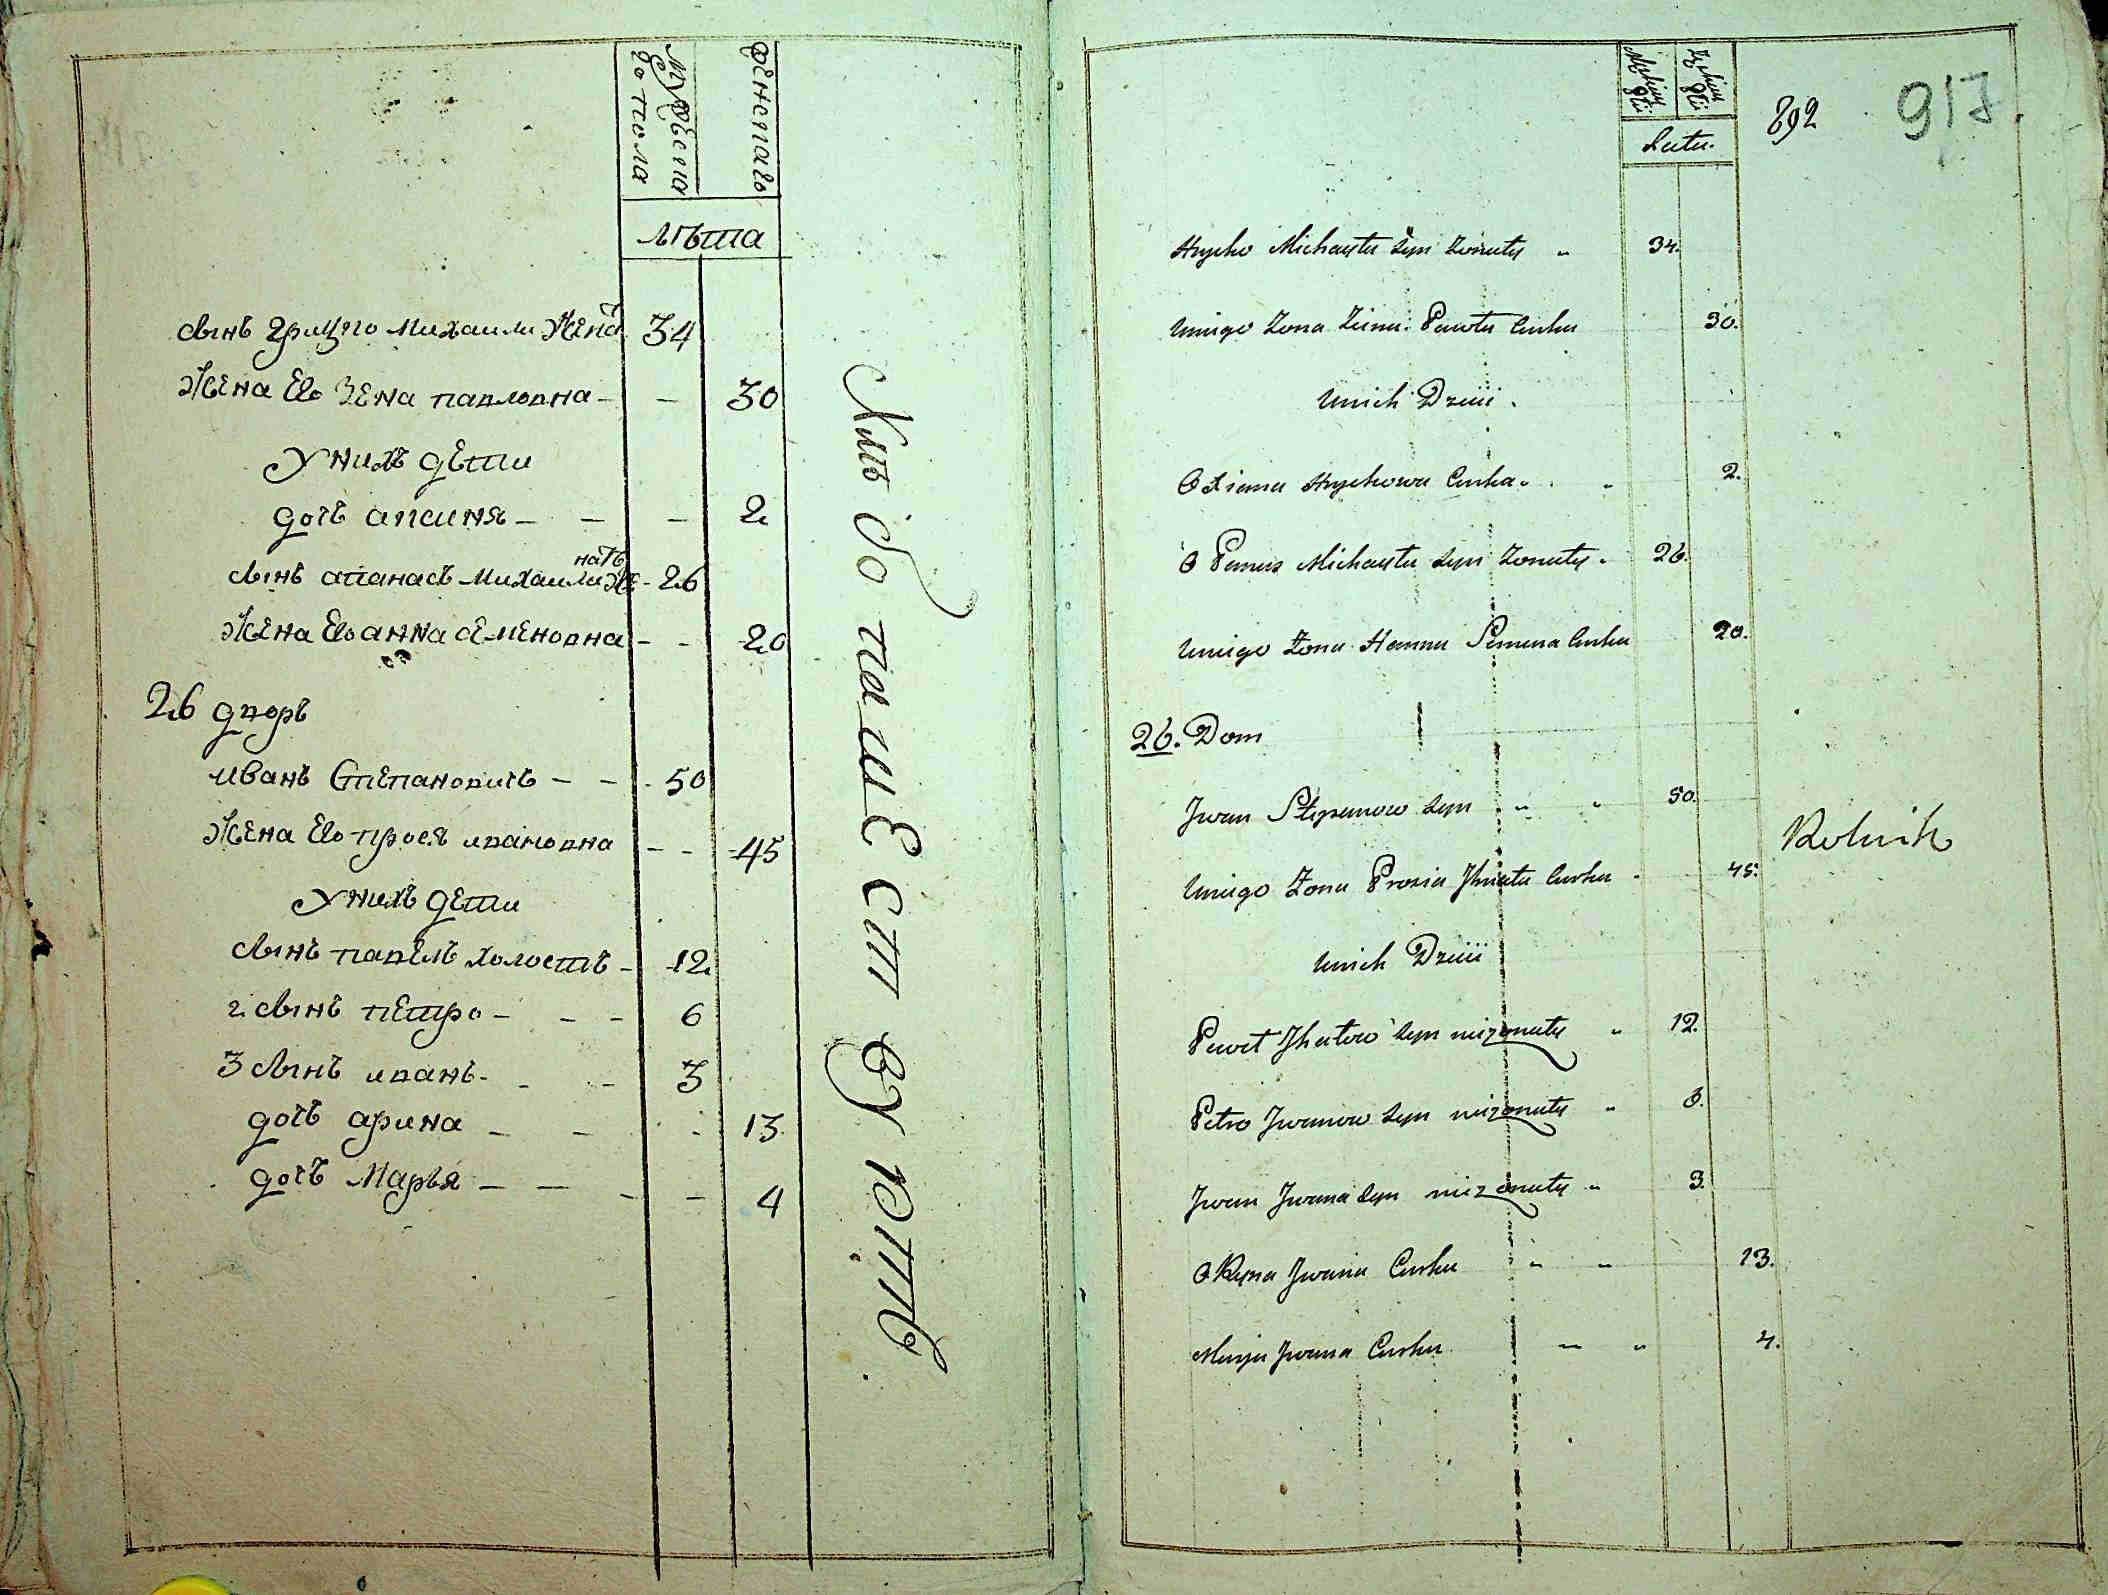 Мужеска
го пола
женскаго
лѣта
сынъ грицко михаила женатъ 34
жена Его Зена павловна - - 30
У нихъ дети
дочъ аксиня - - - 2
сынъ апанасъ михаила женатъ - 26
жена Его анна семеновна - - 20
26 дворъ
иванъ Степановичъ - - - 50
жена Его прося ивановна - - 45
У нихъ дети
сынъ павелъ холостъ - 12
2 сынъ петро - - - 6
3 сынъ иванъ - - - 3
дочъ арина - - - 13
дочъ Марья - - - - 4
892 917.
Męskiej Płci
Żeńskiej Płci
Lata.
Hryćko Michayła Syn żonaty " 34.
U niego Żona Zina Pawła Curka 30.
U nich Dzieci.
Oxiana Hryćkowa Curka. " 2.
O Panas Michayła Syn Żonaty. 26.
U niego Żona Hanna Semena Curka 20.
26. Dom
Jwan Stepanow Syn " " 50.
Rolnik
U niego Żona Prosia Jhnata Curka 45.
U nich Dzieci
Paweł Syn nieżonaty " 12.
Petro Jwanow Syn nieżonaty " 6.
Jwan Jwana Syn nieżonaty " 3.
ORyna Jwana Curka " " 13.
Marja Jwana Curka " " 4.